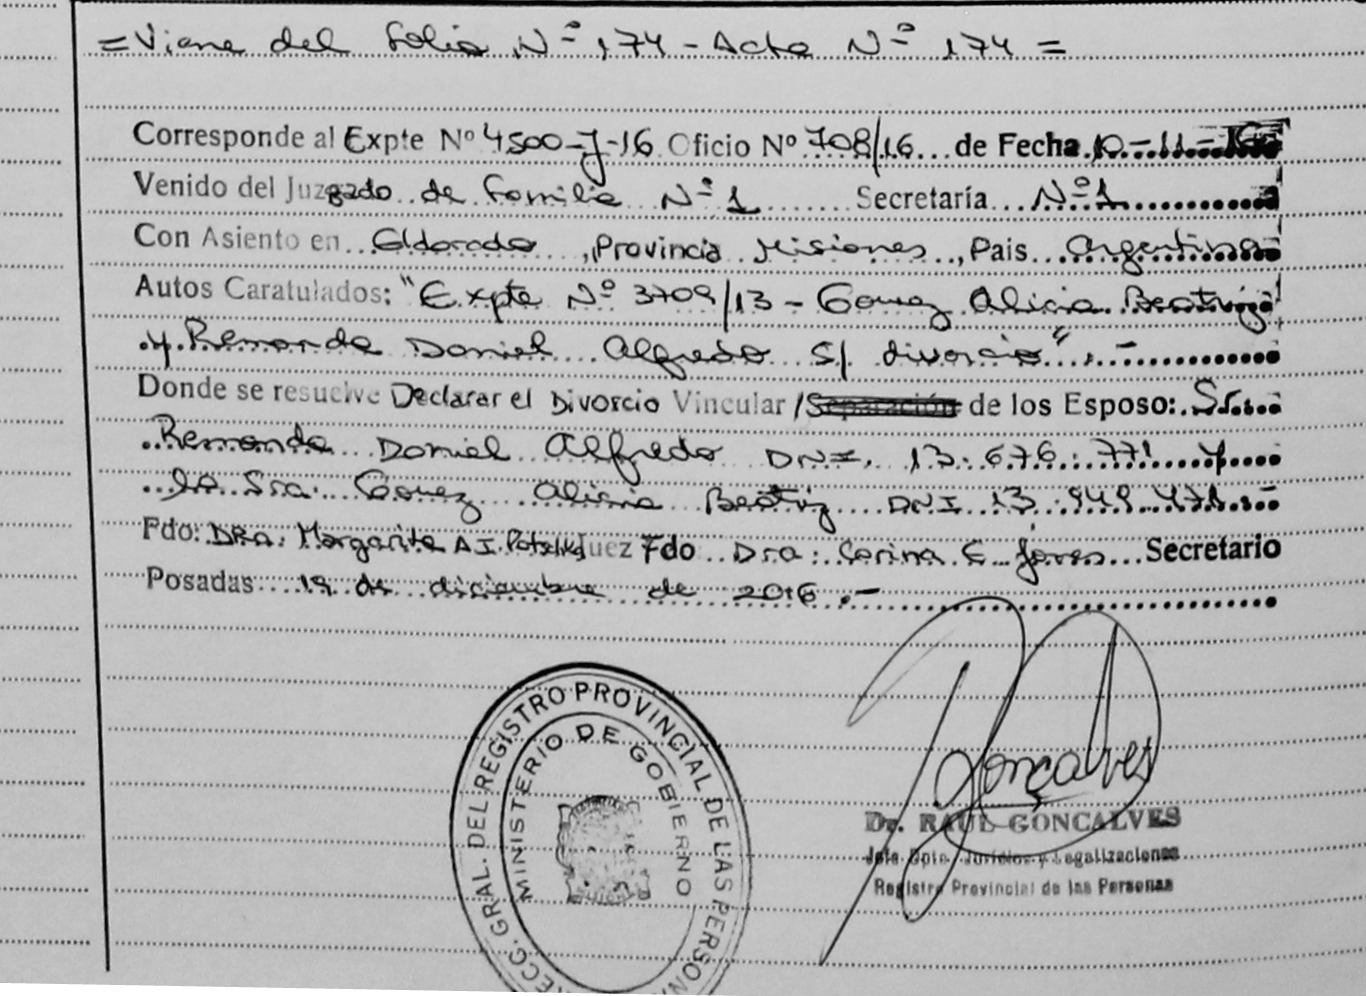 = Viene del folio Nº 174 - Acta Nº 174 =
Corresponde al Expte Nº 4500-J-16 Oficio Nº 708/16 de Fecha 10-11-16
Venido del Juzgado de Familia Nº 1 Secretaría Nº 1
Con Asiento en Eldorado, Provincia Misiones, Pais Argentina
Autos Caratulados: "Expte Nº 3709/13 - Gomez Alicia Beatriz
y Remonda Daniel Alfredo S/. divorcio", .-
Donde se resuelve Declarar el Divorcio Vincular / Separación de los Esposo: Sr.
Remonda Daniel Alfredo DNI. 13.676.771 y
la Sra. Gomez Alicia Beatriz DNI 13.949.471.-
Fdo: DRA. Margarita A I. Juez Fdo Dra: Corina E. Secretario
Posadas 19 de diciembre de 2016 .-
DIRECC. GRAL. DEL REGISTRO PROVINCIAL DE LAS PERSONAS
MINISTERIO DE GOBIERNO
Gonçalves
Dr. RAUL GONCALVES
Jefe Dpto. Jurídico y Legalizaciones
Registro Provincial de las Personas